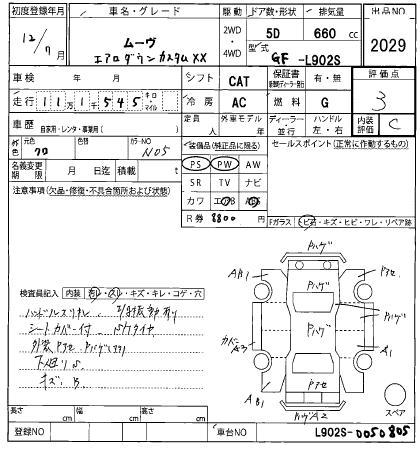 初度登録年月 車名・グレード 駆動 ドア数・形状 排気量 出品NO
12/7月 ムーヴ 2WD・4WD 5D 660cc 2029
エアロダウンカスタムXX 型式 GF-L902S
車検 年 月 シフト CAT 保証書 有・無 評価点
走行 11万1千545 キロ・マイル 冷房 AC 燃料 G 3
車歴 自家用・レンタ・事業用( ) 定員 人 外車モデル 年 ディーラー・並行 ハンドル 左・右 内装評価 C
外色 元色 クロ 色替 カラーNO N05 装備品(純正品に限る) セールスポイント(正常に作動するもの)
名義変更期限 月 日迄 積載 t PS PW AW
注意事項(欠品・修復・不具合箇所および状態) SR TV ナビ
カワ エアB
R券 8800 Fガラス トビ石・キズ・ヒビ・ワレ・リペア跡
検査員記入 内装 汚レ・スレ・キズ・キレ・コゲ・穴
ハンドルスリキレ
シートカバー付
外装
下廻り
キズ
Pハゲ
AB1 Pアセ
Pハゲ
Pハゲ
A1
AB1 Pアセ
スペア
長さ cm 幅 cm 高さ cm
登録NO 車台NO L902S-0050805